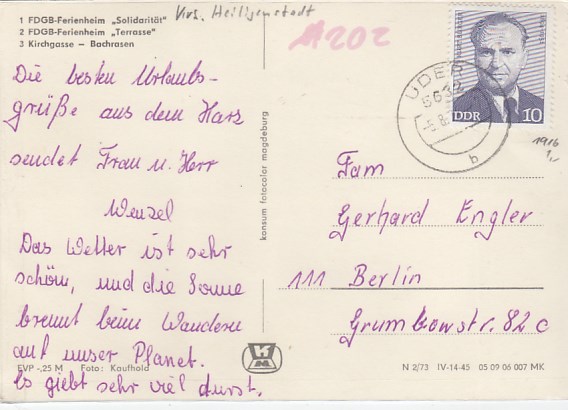 1 FDGB-Ferienheim „Solidarität"
2 FDGB-Ferienheim „Terrasse"
3 Kirchgasse – Bachrasen
Krs. Heiligenstadt
A202
DDR 10
UDER
5632
b
1916
1,-
Die besten Urlaubs-
grüße aus dem Harz
sendet Frau u. Herr
Wenzel
Das Wetter ist sehr
schön, und die Sonne
brennt beim Wandern
auf unser Planet.
Es giebt sehr viel durst.
EVP -,25 M Foto: Kaufhold
konsum fotocolor magdeburg
Fam
Gerhard Engler
111 Berlin
Grumbowstr. 82 c
N 2/73 IV-14-45 05 09 06 007 MK